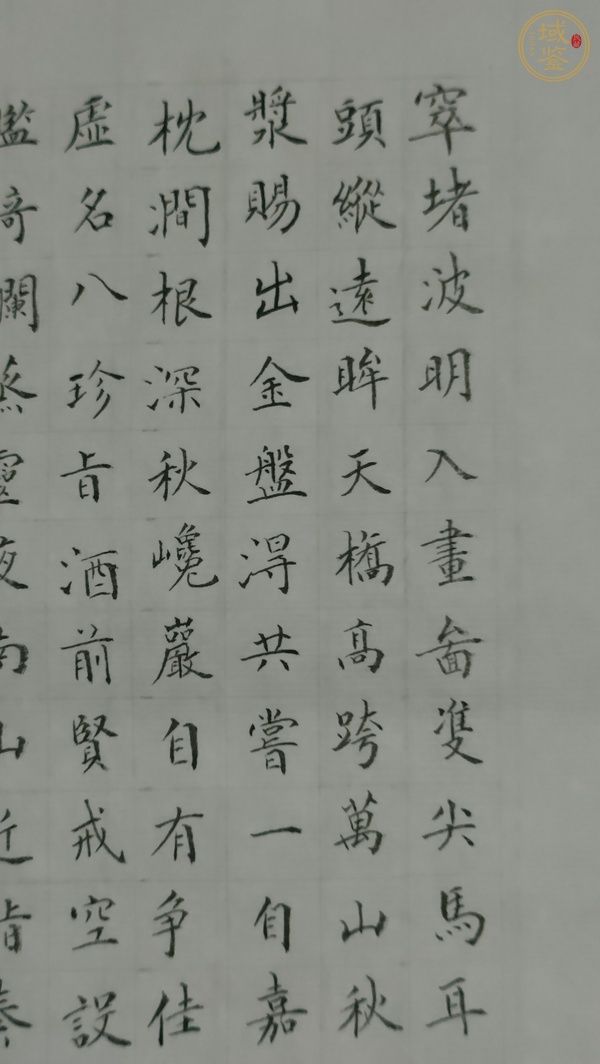 窣堵波明入畫啚䨇尖馬耳
頭縱遠眸天橋高跨萬山秋
漿賜出金盤淂共嘗一自嘉
枕澗根深秋巉巖自有争佳
虛名八珍旨酒前賢戒空設
域鑒